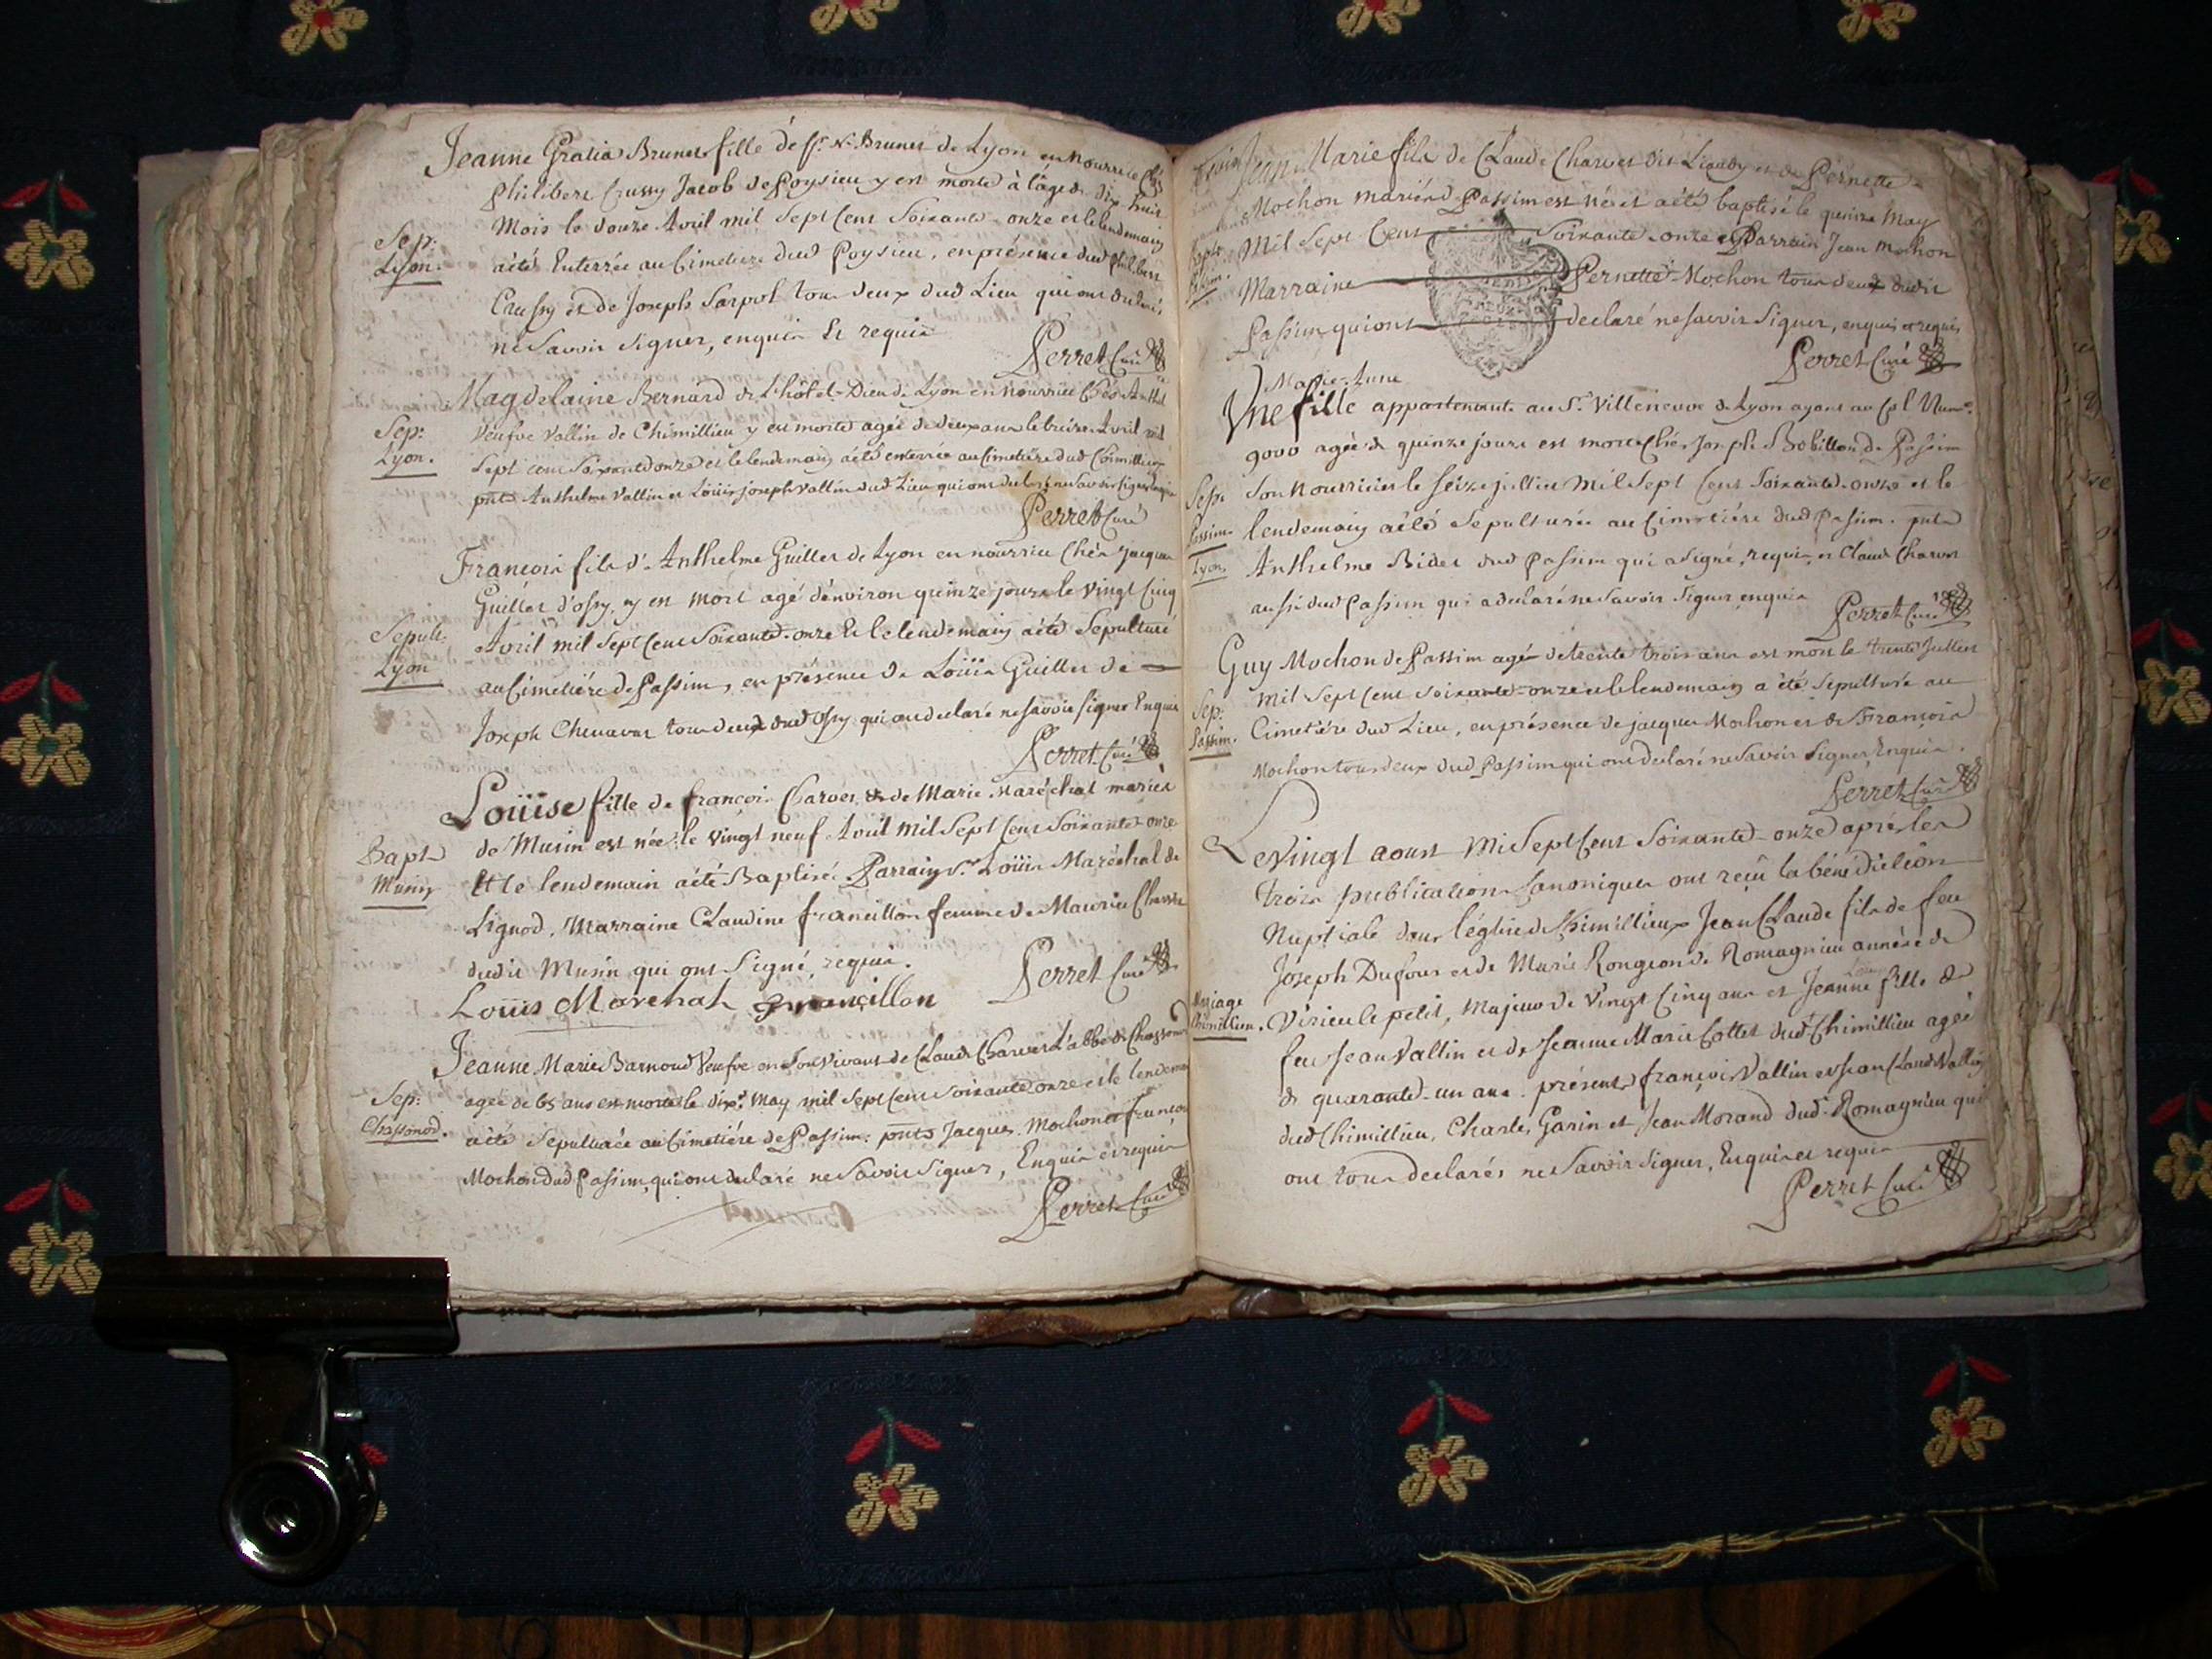 Jeanne Gratia Brunet fille de Sr. N. Brunet de Lyon en nourrice chés
Philibert Crussy Jacob de Poysieu y est morte à l'âge de dix huit
Mois le douze Avril mil Sept Cent Soixante-onze et le lendemain
Sep:
Lyon.
aété Enterrée au Cimetiere dud Poysieu, en présence dud philibert
Crussy et de Joseph Sarpol tous deux dud Lieu qui ont declaré
ne Savoir Signer, enquis Et requis
Perret Curé
Magdelaine Bernard de L'hôtel-Dieu de Lyon en nourrice Chés
Sep:
Lyon.
Veufve Vallin de Chimillieu y est morte agée de deux ans le treize Avril mil
Sept cent Soixante onze et le lendemain aété enterrée au Cimetiére dud Chimillieu
pnts Anthelme Vallin et Loüis joseph Vallin dud Lieu qui ont declaré ne Savoir Signer
Perret Curé
François fils d'Anthelme Guillet de Lyon en nourrice Chés Jacques
Guillet d'ossy, y est mort agé d'environ quinze jours le Vingt Cinq
Sepult:
Lyon
Avril mil Sept Cent Soixante-onze Et le lendemain aété Sepulturé
au Cimetiére de Passim, en présence de Loüis Guillet de
Joseph Chenavas tous deux dud ossy qui ont declaré ne Savoir signer Enquis
Perret Curé
Loüise fille de françois Charvet & de Marie Maréchal mariés
Bapte
Musin
de Musin est née le vingt neuf Avril mil Sept Cent Soixante-onze
Et le lendemain aété Baptisée Parrain Sr. Loüis Maréchal de
Lignod, Marraine Claudine francillon femme de Maurice
dudit Musin qui ont Signé, requis.
Perret Curé
Louis Marechal francillon
Jeanne Marie Barnoud Veufve en Son Vivant de Claude Charvet L'abbé de Chassonod
Sep:
Chassonod.
agée de 65 ans est morte le dixe. May mil Sept Cent Soixante onze et le lendemain
aété Sepulturée au Cimetiére de Passim: pnts Jacques Mochon et françois
Mochon dud Passim, qui ont declaré ne Savoir Signer, Enquis et requis
Perret Curé
Jean Marie fils de Claude Charvet dit Liaudy et de Pernette
Mochon mariés de Passim est né et aété baptisé le quinze May
Bapte
Passim.
Mil Sept Cent Soixante-onze Parrain Jean Mochon
Marraine Pernette Mochon tous deux dudit
Passim qui ont declaré ne Savoir Signer, enquis et requis
Perret Curé
Marie-Anne
Une fille appartenante au Sr. Villeneuve de Lyon ayant au Col Nume.
9000 agée de quinze jours est morte Chés Joseph Bobillon de Passim
Sep:
Passim.
Lyon.
Son nourricier le Seize juillet Mil Sept Cent Soixante-onze et le
lendemain aété Sepulturée au Cimetiére dud Passim. pnts
Anthelme Bidet dud Passim qui a Signé, requis, et Claude Charvet
aussi dud Passim qui a declaré ne Savoir Signer enquis
Perret Curé
Guy Mochon de Passim agé de trente trois ans est mort le trente Juillet
Sep:
Passim.
Mil Sept Cent Soixante-onze et le lendemain a été Sepulturé au
Cimetiére dud Lieu, en présence de jacques Mochon et de François
Mochon tous deux dud Passim qui ont declaré ne Savoir Signer, Enquis.
Perret Curé
Le vingt aoust Mil Sept Cent Soixante-onze aprés les
trois publications Canoniques ont reçû la bénédiction
Nuptiale dans l'église de Chimillieux Jean Claude fils de feu
Joseph Dufour et de Marie Rongeon de Romagnieu annéxe de
Mariage
Chimillieu.
Virieu le petit, Majeur de Vingt Cinq ans et Jeanne fille de
feu Jean Vallin et de Jeanne Marie Collet dud Chimillieu agée
de quarante-un ans. présents françois Vallin et Jean Claude Vallin
dud Chimillieu, Charles Garin et Jean Morand dud. Romagnieu qui
ont tous declarés ne Savoir Signer, Enquis et requis
Perret Curé